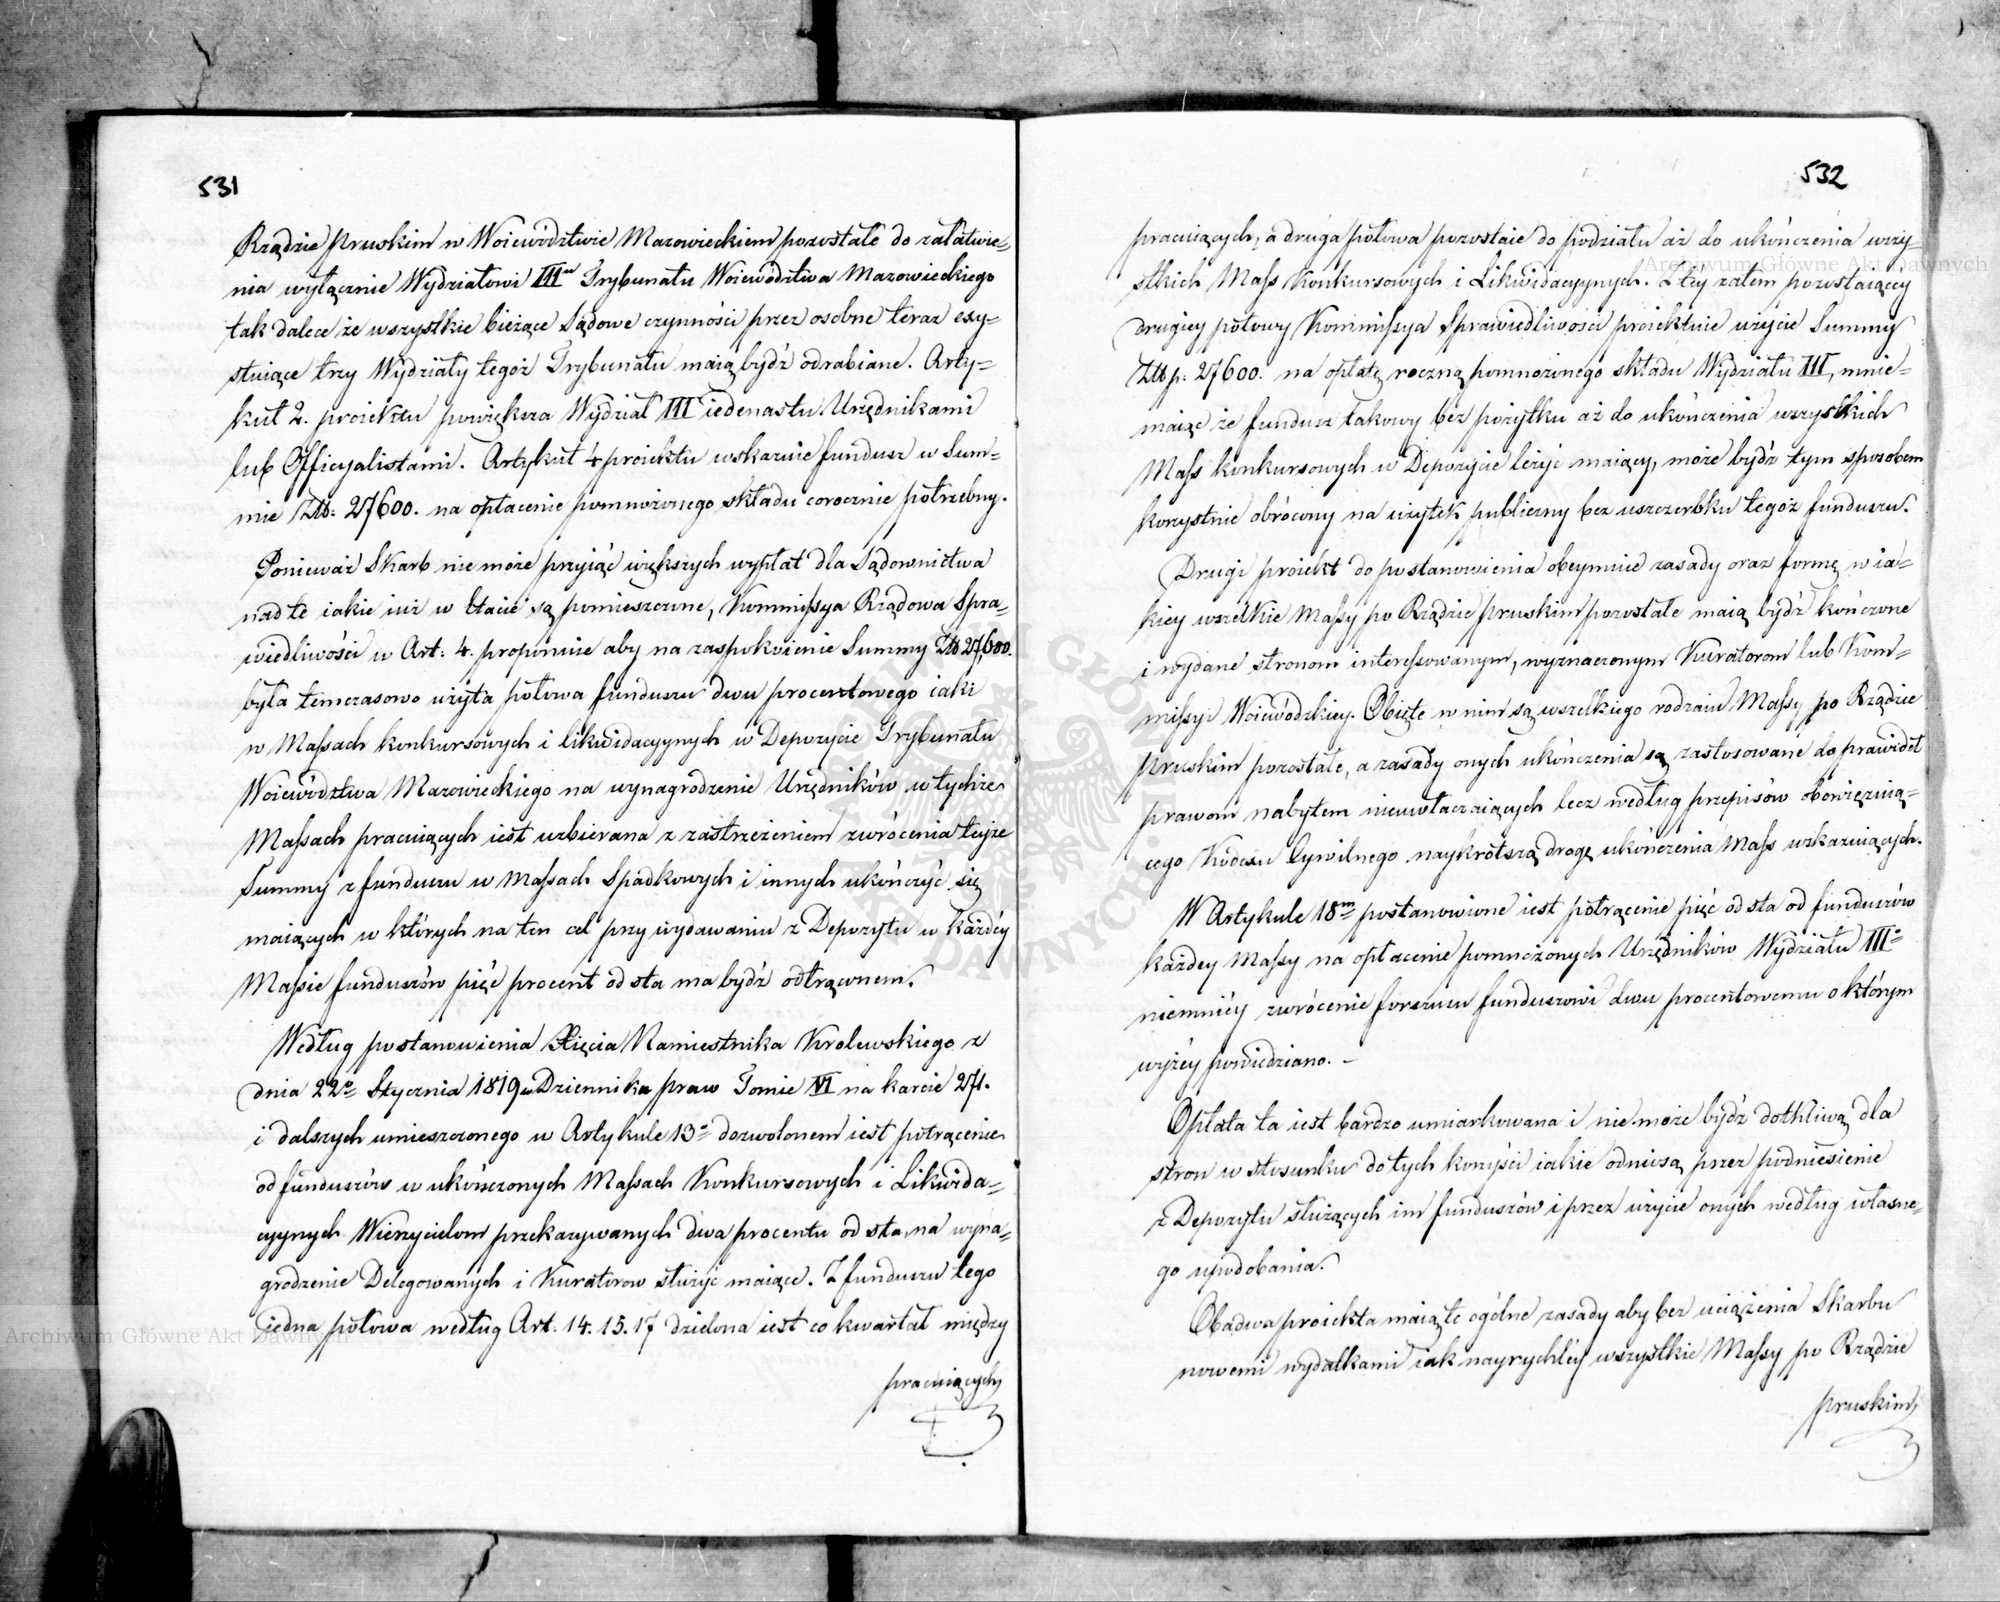 531
Rządzie Pruskim w Woiewództwie Mazowieckiem pozostałe do załatwie=
nia wyłącznie Wydziałowi III^mu Trybunału Woiewództwa Mazowieckiego
tak dalece że wszystkie bieżące Sądowe czynności przez osobne teraz exy=
stuiące trzy Wydziały tegoż Trybunału maią bydź odrabiane. Arty=
kuł 2. proiektu powiększa Wydział III iedenastu Urzędnikami
lub Officyalistami. Artykuł 4 proiektu wskazuie fundusz w Sum=
mie Złtt: 27600. na opłacenie pomnożonego składu corocznie potrzebny.
Ponieważ Skarb nie może przyiąć większych wypłat dla Sądownictwa
nad te iakie iuż w Etacie są pomieszczone, Kommissya Rządowa Spra=
wiedliwości w Art: 4. proponuie aby na zaspokoienie Summy Złtt 27,600.
była temczasowo użyta połowa funduszu dwu procentowego iaki
w Massach konkursowych i likwidacyynych w Depozycie Trybunału
Woiewództwa Mazowieckiego na wynagrodzenie Urzędników w tychże
Massach pracuiących iest uzbierana z zastrzeżeniem zwrócenia teyże
Summy z funduszu w Massach Spadkowych i innych ukończyć się
maiących w których na ten cel przy wydawaniu z Depozytu w każdéy
Massie funduszów pięć procent od sta ma bydź odtrąconem.
Według postanowienia Xięcia Namiestnika Krolewskiego z
dnia 22º Stycznia 1819 w Dziennika praw Tomie VI na karcie 271.
i dalszych umieszczonego w Artykule 13º dozwolonem iest potrącenie
od funduszów w ukończonych Massach Konkursowych i Likwida=
cyynych Wierzycielom przekazywanych dwa procentu od sta, na wyna=
grodzenie Delegowanych i Kuratorow służyć maiące. Z funduszu tego
iedna połowa według Art. 14. 15. 17 dzielona iest co kwartał między
pracuiących
532
pracuiących, a druga połowa pozostaie do podziału aż do ukończenia wszy=
stkich Mass Konkursowych i Likwidacyynych. Z tey zatem pozostaiącey
drugiey połowy Kommissya Sprawiedliwości proiektuie użycie Summy
Złtt p: 27600. na opłatę roczną pomnożonego składu Wydziału III, mnie=
maiąc że fundusz takowy bez pożytku aż do ukończenia wszystkich
Mass konkursowych w Depozycie leżyć maiący, może bydź tym sposobem
korzystnie obrócony na użytek publiczny bez uszczerbku tegoż funduszu.
Drugi proiekt do postanowienia obeymuie zasady oraz formę w ia=
kiey wszelkie Massy po Rządzie pruskim pozostałe maią bydź kończone
i wydane stronom interessowanym, wyznaczonym Kuratorom lub Kom=
missyi Woiewódzkiey. Obięte w nim są wszelkiego rodzaiu Massy po Rządzie
pruskim pozostałe, a zasady onych ukończenia są zastosowane do prawideł
prawom nabytem nieuwłaczaiących lecz według przepisów obowięzuią=
cego Kodexu Cywilnego naykrótszą drogę ukończenia Mass wskazuiących.
W Artykule 18^m postanowione iest potrącenie pięć od sta od funduszów
każdey Massy na opłacenie pomnożonych Urzędników Wydziału IIIº
niemniéy zwrócenie forszusu funduszowi dwu procentowemu o którym
wyżéy powiedziano. –
Opłata ta iest bardzo umiarkowana i nie może bydź dotkliwą dla
stron w stosunku do tych korzyści iakie odniosą przez podniesienie
z Depozytu służących im funduszów i przez użycie onych według własne=
go upodobania.
Obadwa proiekta maią te ogólne zasady aby bez uciążenia Skarbu
nowemi wydatkami iak nayrychléy wszystkie Massy po Rządzie
pruskim
Archiwum Główne Akt Dawnych
Archiwum Główne Akt Dawnych